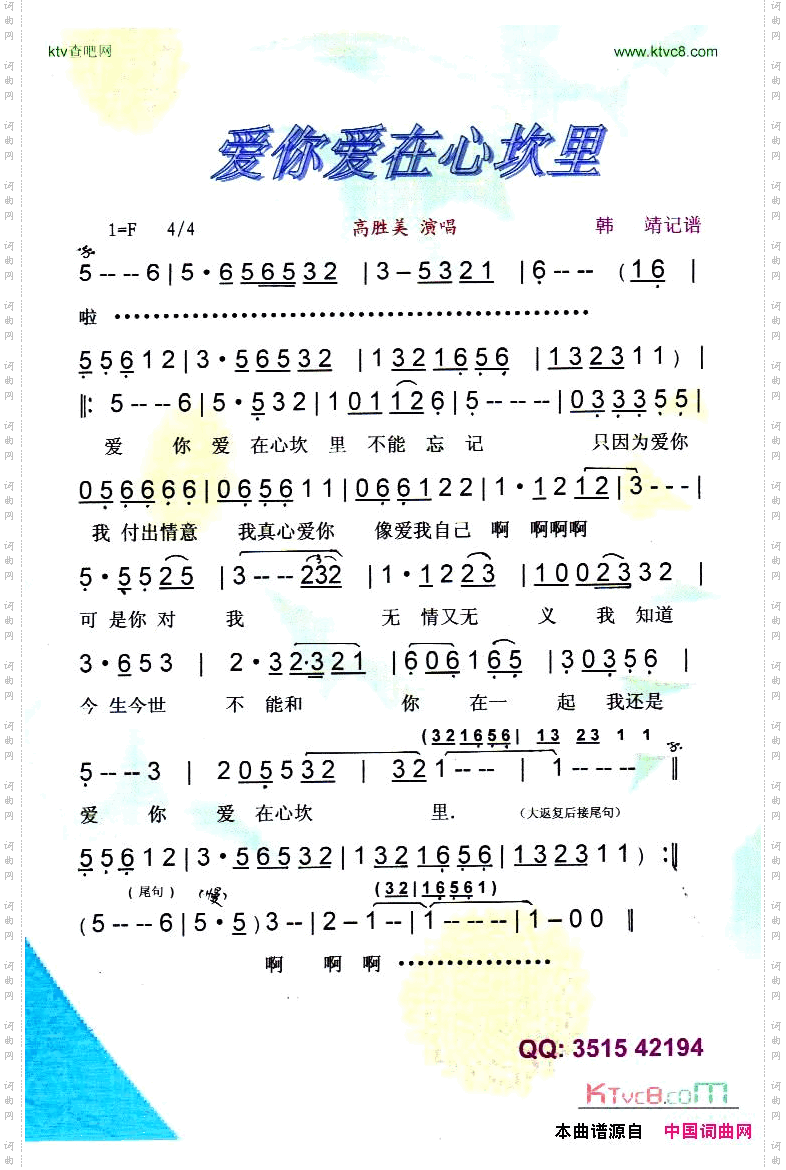 ktv查吧网 www.ktvc8.com
爱你爱在心坎里
1=F 4/4 高胜美 演唱 韩 靖记谱
5 - - - 6 | 5 · 6 5 6 5 3 2 | 3 – 5 3 2 1 | 6 · - - - ( 1 6 |
啦 ••••••••••••••••••••••••••••••••••••••••
5 5 6 1 2 | 3 · 5 6 5 3 2 | 1 3 2 1 6 5 6 | 1 3 2 3 1 1 ) |
‖: 5 - - - 6 | 5 · 5 3 2 | 1 0 1 1 2 6 | 5 - - - | 0 3 3 3 5 5 |
爱 你 爱 在心坎 里 不能 忘 记 只因为爱你
0 5 6 6 6 6 | 0 6 5 6 1 1 | 0 6 6 1 2 2 | 1 · 1 2 1 2 | 3 - - - |
我 付出情意 我真心爱你 像爱我自己 啊 啊啊啊
5 · 5 5 2 5 | 3 - - - 2 3 2 | 1 · 1 2 2 3 | 1 0 0 2 3 3 2 |
3
可 是你 对 我 无 情又无 义 我 知道
3 · 6 5 3 | 2 · 3 2 · 3 2 1 | 6 0 6 1 6 5 | 3 0 3 5 6 |
今 生今世 不 能和 你 在一 起 我还是
( 3 2 1 6 5 6 | 1 3 2 3 1 1
5 - - - 3 | 2 0 5 5 3 2 | 3 2 1 - - - | 1 - - - - ‖
爱 你 爱 在心坎 里. (大返复后接尾句)
5 5 6 1 2 | 3 · 5 6 5 3 2 | 1 3 2 1 6 5 6 | 1 3 2 3 1 1 ) :‖
( 尾句 ) (慢) ( 3 2 | 1 6 5 6 1 )
( 5 - - - 6 | 5 · 5 ) 3 - - | 2 – 1 - - | 1 - - - - | 1 – 0 0 ‖
啊 啊 啊 ••••••••••••••••
QQ: 3515 42194
KTvc8.com
本曲谱源自 中国词曲网
词曲网